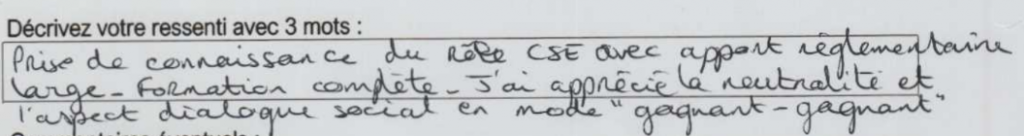 Décrivez votre ressenti avec 3 mots :
Prise de connaissance du Rôle CSE avec apport règlementaire
large - Formation complète - J'ai apprécié la neutralité et
l'aspect dialogue social en mode "gagnant-gagnant"